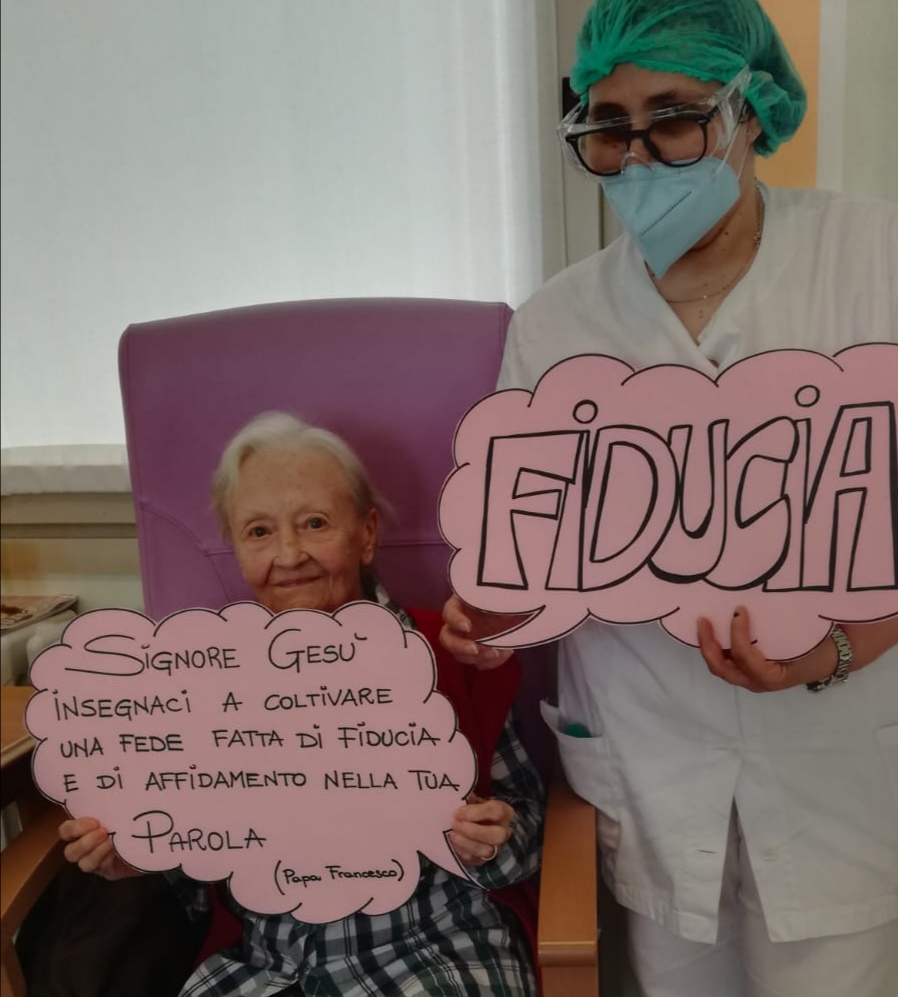 SIGNORE GESÙ
INSEGNACI A COLTIVARE
UNA FEDE FATTA DI FIDUCIA
E DI AFFIDAMENTO NELLA TUA
PAROLA
(Papa Francesco)
FIDUCIA